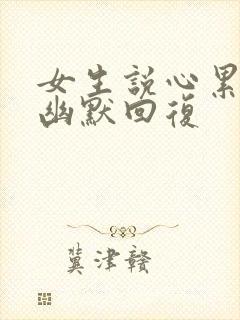 女生説心累
幽默回復
冀津赣